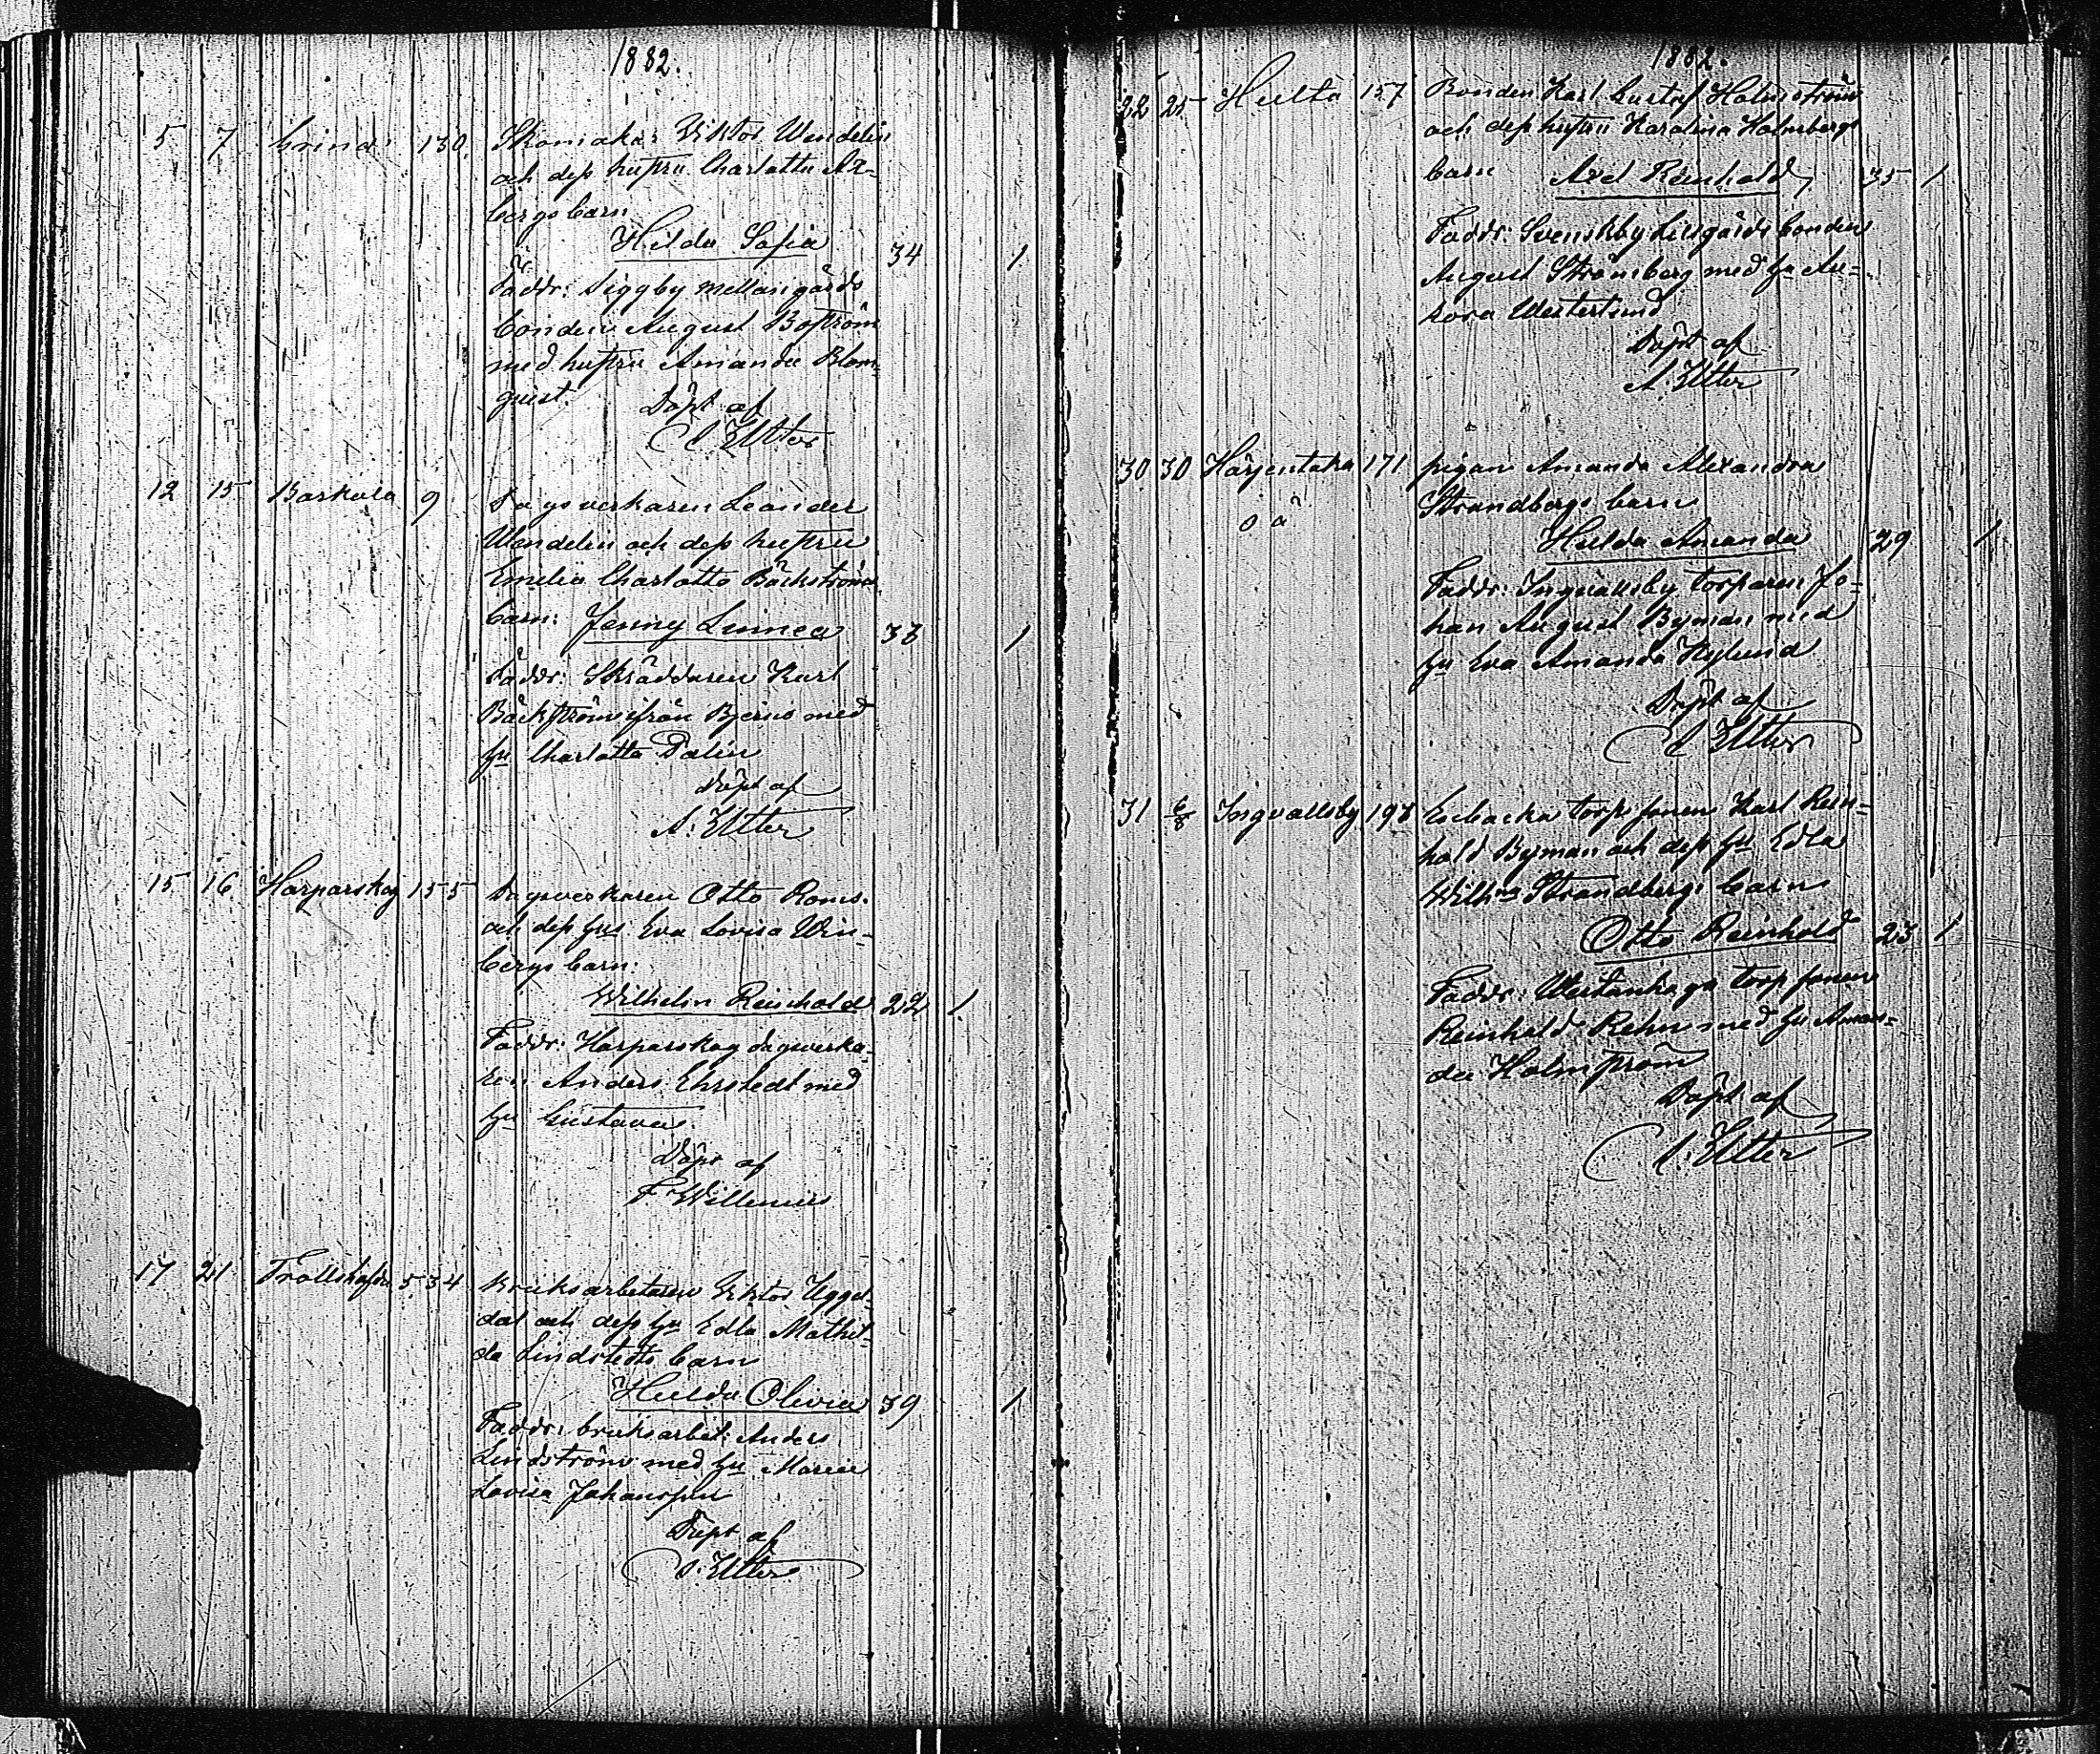 1882.
5 7 Grind 130 Skomaka: Viktor Wendelin
och dess hustru Charlotta Ax-
bergs barn
Hilda Sofia 34 1
Faddr: Siggby mellangårds
bonden August Boström
med hustru Amanda Blom-
quist
Döpt af
A. Utter
12 15 Baskula 9 Dagsverkaren Leander
Wendelin och dess hustru
Emelia Charlotta Bäckströms
barn: Jenny Linnea 38 1
Faddr: Skräddaren Karl
Bäckström ifrån Bjerno med
hu Charlotta Dalin
Döpt af
A. Utter
15 16 Harparskog 155 Dagsverkaren Otto Roms
och dess hus Eva Lovisa Win-
bergs barn:
Wilhelm Reinhold 22 1
Faddr: Harparskog dagsverka-
ren Anders Ehrstedt med
hu Gustava
Döpt af
F. Willenius
17 21 Trollshofda 534 Bruksarbetaren Viktor Uggel-
dal och dess hu Edla Mathil-
da Lindstedts barn
Hulda Olivia 39 1
Faddr: bruksarbet: Anders
Lindström med hu Maria
Lovisa Johansson
Döpt af
A. Utter
1882.
22 25 Hulta 157 Bonden Karl Gustaf Holmström
och dess hustru Karolina Holmbergs
barn Axel Reinhold 35 1
Faddr: Svenskby Lillgårds bonden
August Strömberg med hu Au-
rora Westerlund
Döpt af
A. Utter
30 30 Harjentaka 171 pigan Amanda Alexandra
o ä Strandbergs barn
Hulda Amanda 29 1
Faddr: Ingvallsby torparen Jo-
han August Byman med
hu Eva Amanda Nylund
Döpt af
A Utter
31 6/8 Ingvallsby 198 torpsonen Karl Rein-
hold Byman och dess hu Edla
Wilhna Strandbergs barn
Otto Reinhold 23 1
Faddr: Westankaga torpsonen
Reinhold Rehn med hu Aman-
da Holmström
Döpt af
A. Utter